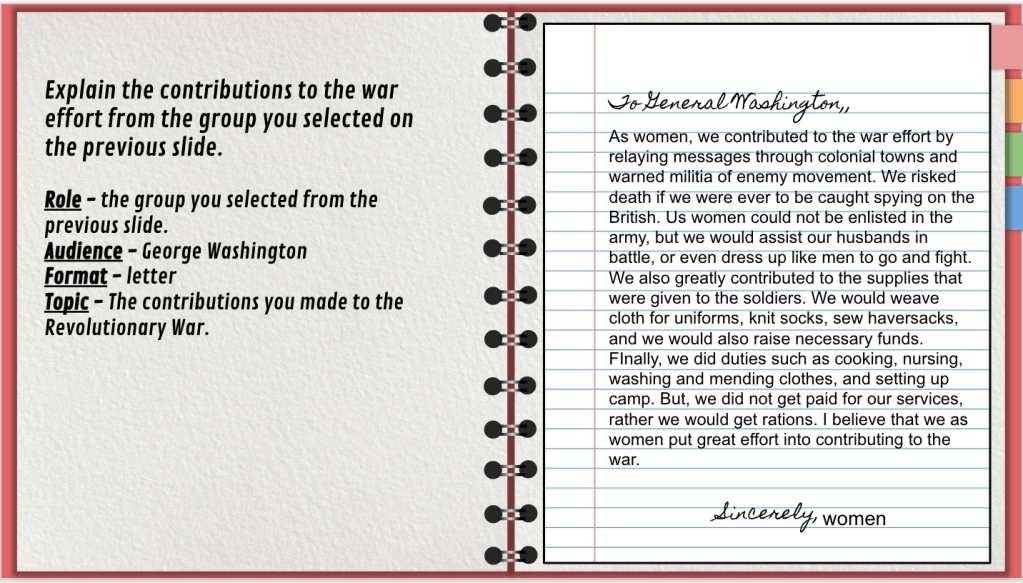 Explain the contributions to the war
effort from the group you selected on
the previous slide.
Role – the group you selected from the
previous slide.
Audience – George Washington
Format – letter
Topic – The contributions you made to the
Revolutionary War.
To General Washington,,
As women, we contributed to the war effort by
relaying messages through colonial towns and
warned militia of enemy movement. We risked
death if we were ever to be caught spying on the
British. Us women could not be enlisted in the
army, but we would assist our husbands in
battle, or even dress up like men to go and fight.
We also greatly contributed to the supplies that
were given to the soldiers. We would weave
cloth for uniforms, knit socks, sew haversacks,
and we would also raise necessary funds.
FInally, we did duties such as cooking, nursing,
washing and mending clothes, and setting up
camp. But, we did not get paid for our services,
rather we would get rations. I believe that we as
women put great effort into contributing to the
war.
Sincerely, women